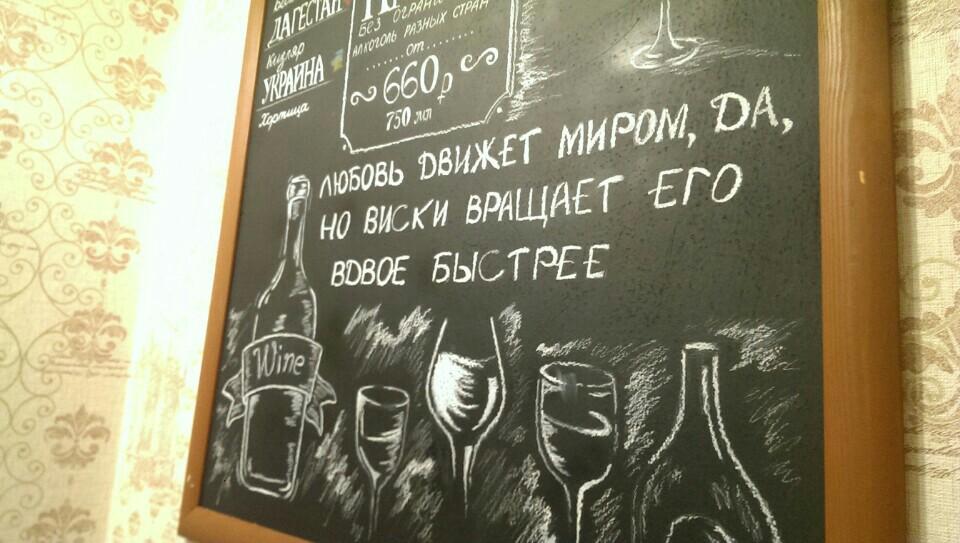 ДАГЕСТАН
Кизляр
УКРАИНА
Хортица
БЕЗ
АЛКОГОЛЬ РАЗНЫХ СТРАН
........от........
660₽
750 мл
ЛЮБОВЬ ДВИЖЕТ МИРОМ, ДА,
НО ВИСКИ ВРАЩАЕТ ЕГО
ВДВОЕ БЫСТРЕЕ
Wine